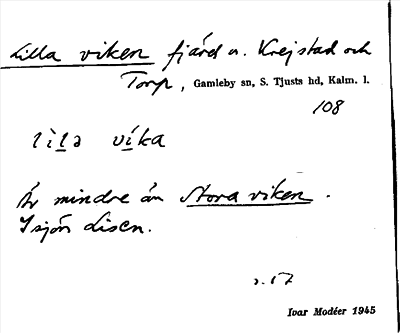 Lilla viken fjärd n. Krejstad och
Torp, Gamleby sn, S. Tjusts hd, Kalm. l.
108
lìlə vika
Är mindre än Stora viken.
I sjön Disen.
s. 17
Ivar Modéer 1945